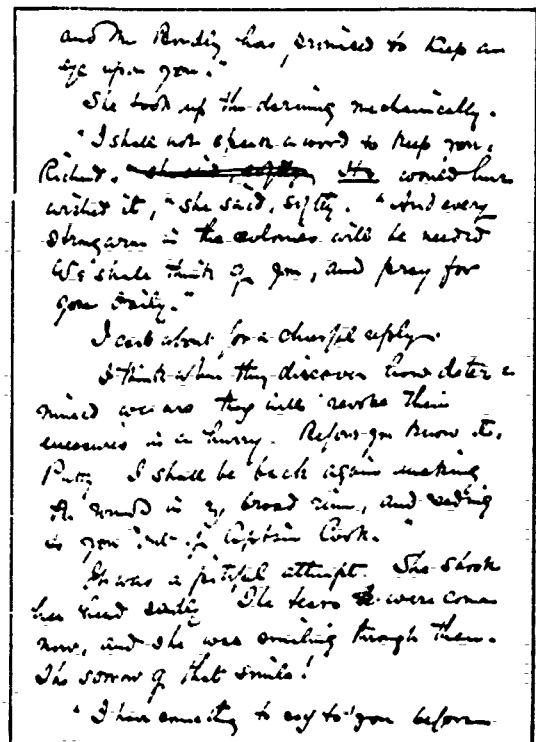 and Mr Bordley has promised to keep an
eye upon you."
She took up the darning mechanically.
"I shall not speak a word to keep you,
Richard. she said, softly, He would have
wished it," she said, softly. "And every
strong arm in the colonies will be needed
We shall think of you, and pray for
you daily."
I cast about for a cheerful reply.
I think when they discover how deter
mined we are they will revoke their
measures in a hurry. Before you know it,
Patty I shall be back again making
the rounds in my broad rim, and reading
to you out of Captain Cook."
It was a pitiful attempt. She shook
her head sadly The tears were come
now, and she was smiling through them.
The sorrow of that smile!
"I have something to say to you before